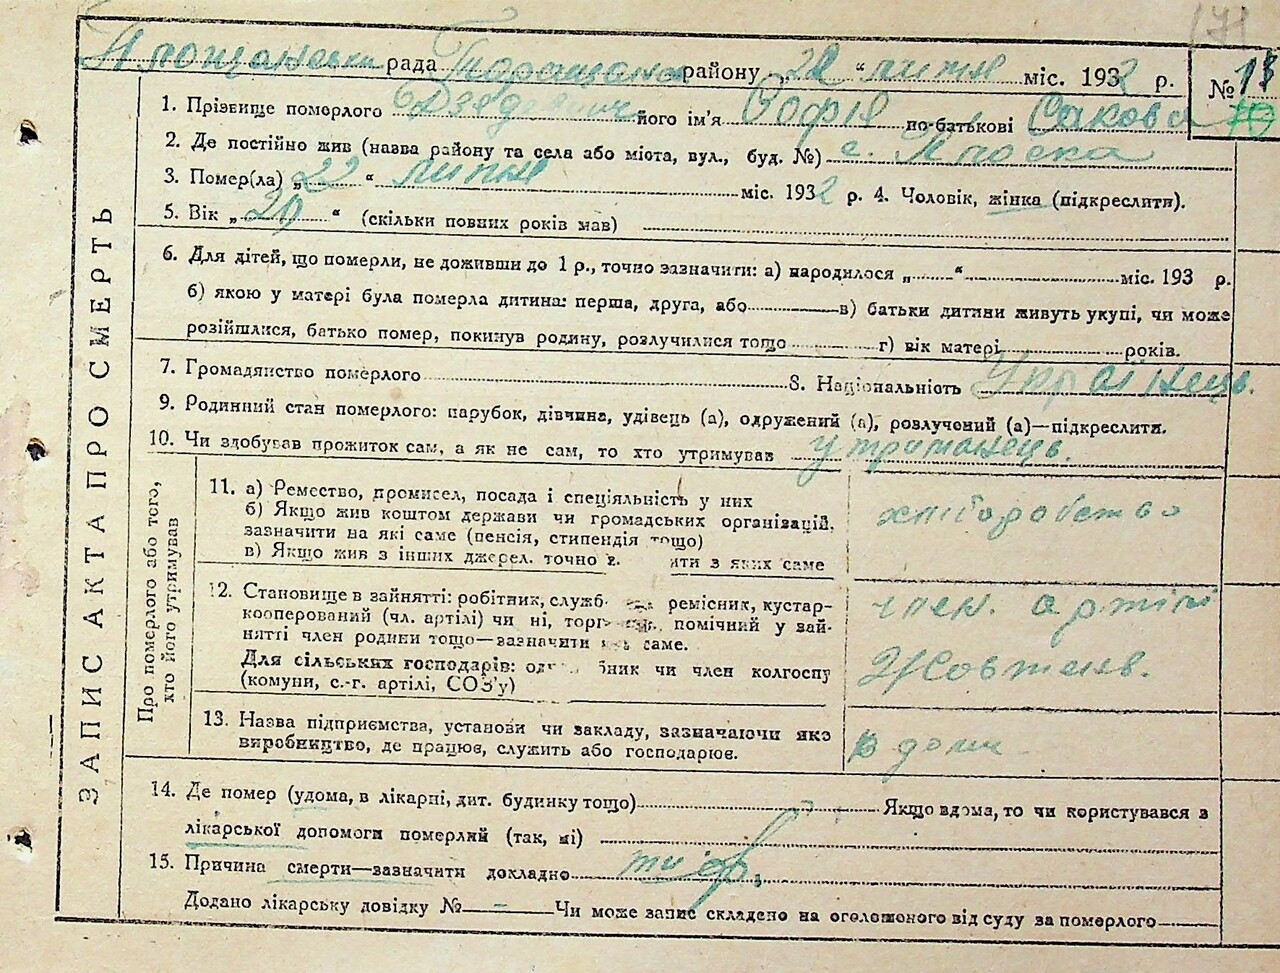 171
Площанська рада Тидращанськ району „22“ липня міс. 1932 р. № 13
1. Прізвище померлого його ім'я Софія по-батькові Сакова
2. Де постійно жив (назва району та села або міста, вул., буд. №) с. Плоска
3. Помер(ла) „22“ липня міс. 1932 р. 4. Чоловік, жінка (підкреслити).
5. Вік „20“ (скільки повних років мав)
6. Для дітей, що померли, не доживши до 1 р., точно зазначити: а) народилося „ “ міс. 193 р.
б) якою у матері була померла дитина: перша, друга, або в) батьки дитини живуть укупі, чи може
розійшлися, батько помер, покинув родину, розлучилися тощо г) вік матері років.
7. Громадянство померлого 8. Національність Українець.
9. Родинний стан померлого: парубок, дівчина, удівець (а), одружений (а), розлучений (а)—підкреслити.
10. Чи здобував прожиток сам, а як не сам, то хто утримував утриманець.
ЗАПИС АКТА ПРО СМЕРТЬ
Про померлого або того,
хто його утримував
11. а) Ремество, промисел, посада і спеціяльність у них
б) Якщо жив коштом держави чи громадських організацій,
зазначити на які саме (пенсія, стипендія тощо)
в) Якщо жив з інших джерел, точно з. ити з яких саме
хліборобство
12. Становище в зайнятті: робітник, служб ремісник, кустар-
кооперований (чл. артілі) чи ні, торг помічний у зай-
нятті член родини тощо—зазначити саме.
Для сільських господарів: од бник чи член колгоспу
(комуни, с.-г. артілі, СОЗ'у)
член. артілі
Жовтень.
13. Назва підприємства, установи чи закладу, зазначаючи яке
виробництво, де працює, служить або господарює.
в доми
14. Де помер (удома, в лікарні, дит. будинку тощо) Якщо вдома, то чи користувався з
лікарської допомоги померлий (так, ні)
15. Причина смерти—зазначити докладно тиф,
Додано лікарську довідку № – Чи може запис складено на оголошеного від суду за померлого